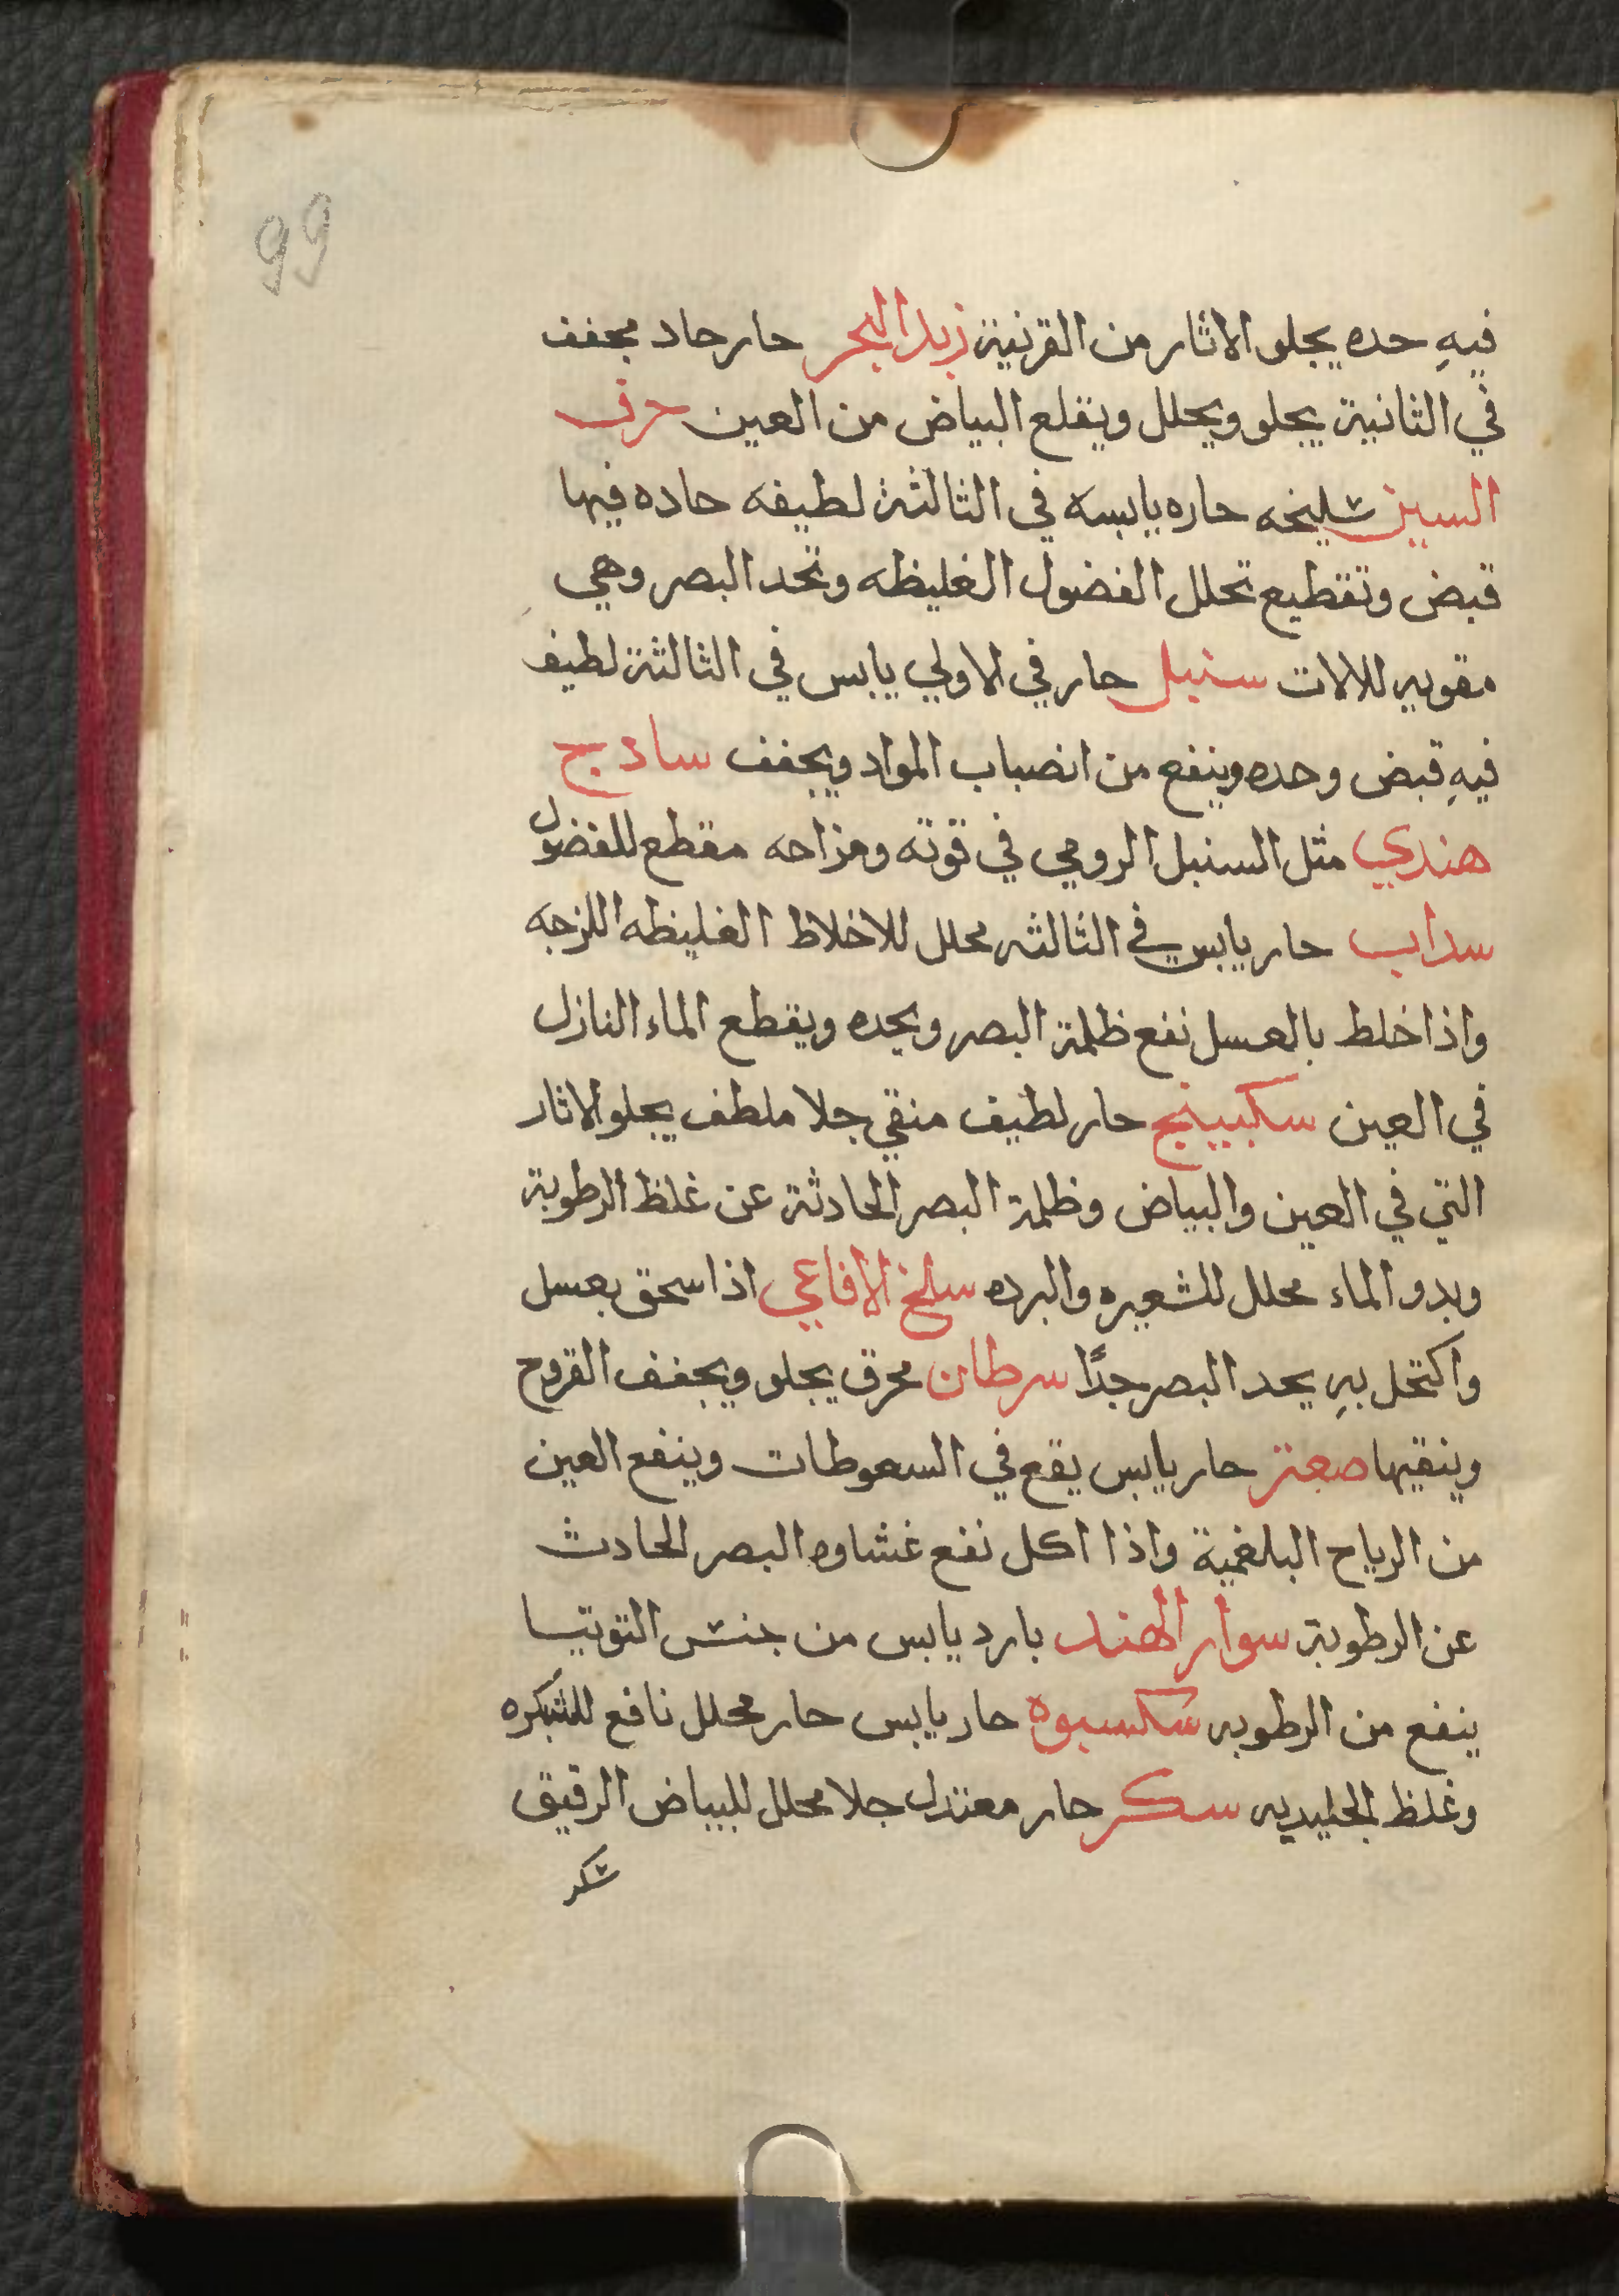 99
فيهِ حده يجلو الاثار من القرنية زبد البحر حار حاد مجفف
في الثانية يجلو ويحلل ويقلع البياض من العين حرف
السين شليخه حاره يابسه في الثالثة لطيفه حاده فيها
قبض وتقطيع تحلل الفضول الغليظه وتحد البصر وهي
مقويه للالات سنبل حار في الاولي يابس في الثالثة لطيف
فيهِ قبض وحده وينفع من انصباب المواد ويجفف سادج
هندي مثل السنبل الرومي في قوته ومزاجه مقطع للفضول
سداب حار يابس في الثالثه محلل للاخلاط الغليظه اللزجه
واذا خلط بالعسل نفع ظلمة البصر ويحده ويقطع الماء النازل
في العين سكبينج حار لطيف منقي جلا ملطف يجلو الاثار
التي في العين والبياض وظلمة البصر الحادثة عن غلظ الرطوبة
وبدو الماء محلل للشعيره والبرده سلخ الافاعي اذا سحق بعسل
واكتحل بهِ يحد البصر جدًا سرطان محرق يجلو ويجفف القروح
وينقيها صعتر حار يابس يقع في السعوطات وينفع العين
من الرياح البلغمية واذا اكل نفع غشاوه البصر الحادث
عن الرطوبة سوار الهند بارد يابس من جنس التوتيا
ينفع من الرطوبه سكسبوه حار يابس حار محلل نافع للشبكره
وغلظ الجليديه سكر حار معتدل جلا محلل للبياض الرقيق
شكر